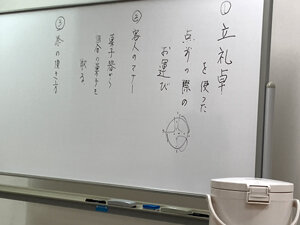 ① 立礼卓
を使った
点前の際の
お運び
② 客人のマナー
菓子器から
自分の菓子を
取る
③ 茶の頂き方